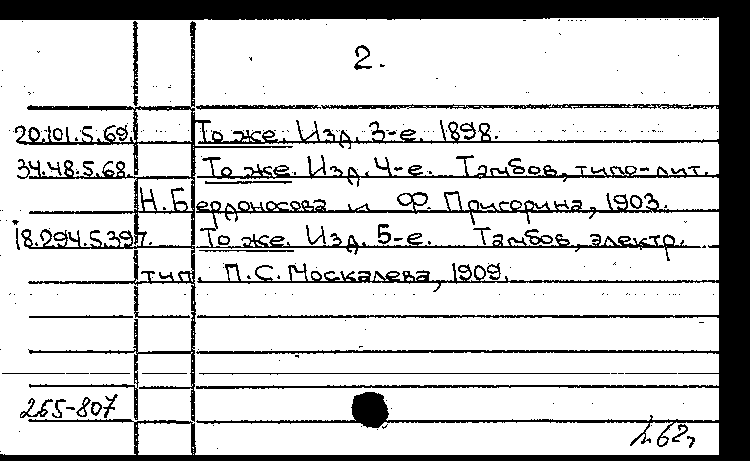 2.
20.101.5.69. То же. Изд. 3-е. 1898.
34.48.5.68. То же. Изд. 4-е. Тамбов, типо-лит.
Н. Бердоносова и Ф. Пригорина, 1903.
18.294.5.397. То же. Изд. 5-е. Тамбов, электр.
тип. П.С. Москалева, 1909.
265-807